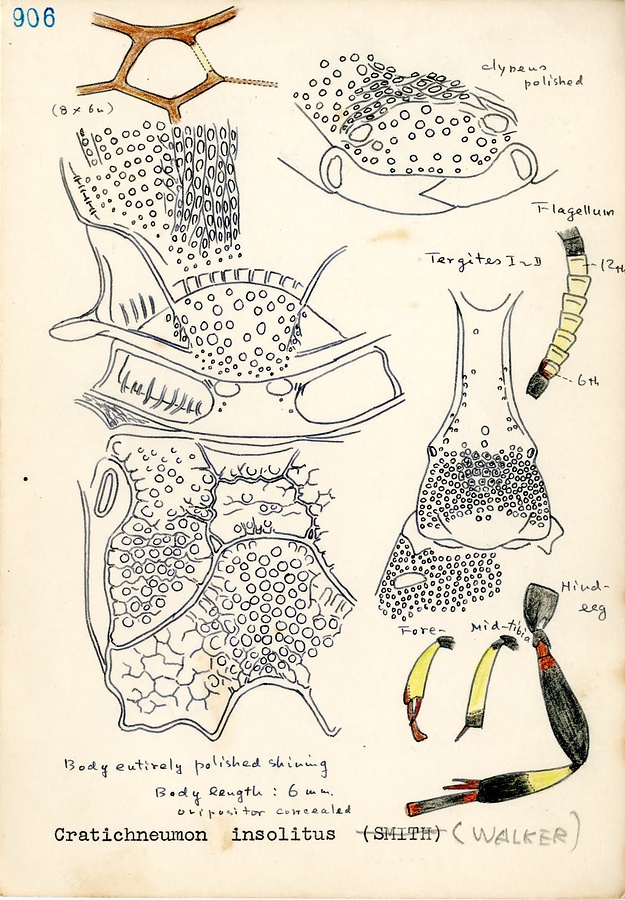 906
(8 x 6u)
clypeus
polished
Flagellum
12th
6th
Tergites I~II
Hind-
leg
Fore-
Mid-tibia
Body entirely polished shining
Body length : 6 mm.
ovipositor concealed
Cratichneumon insolitus (SMITH) (WALKER)